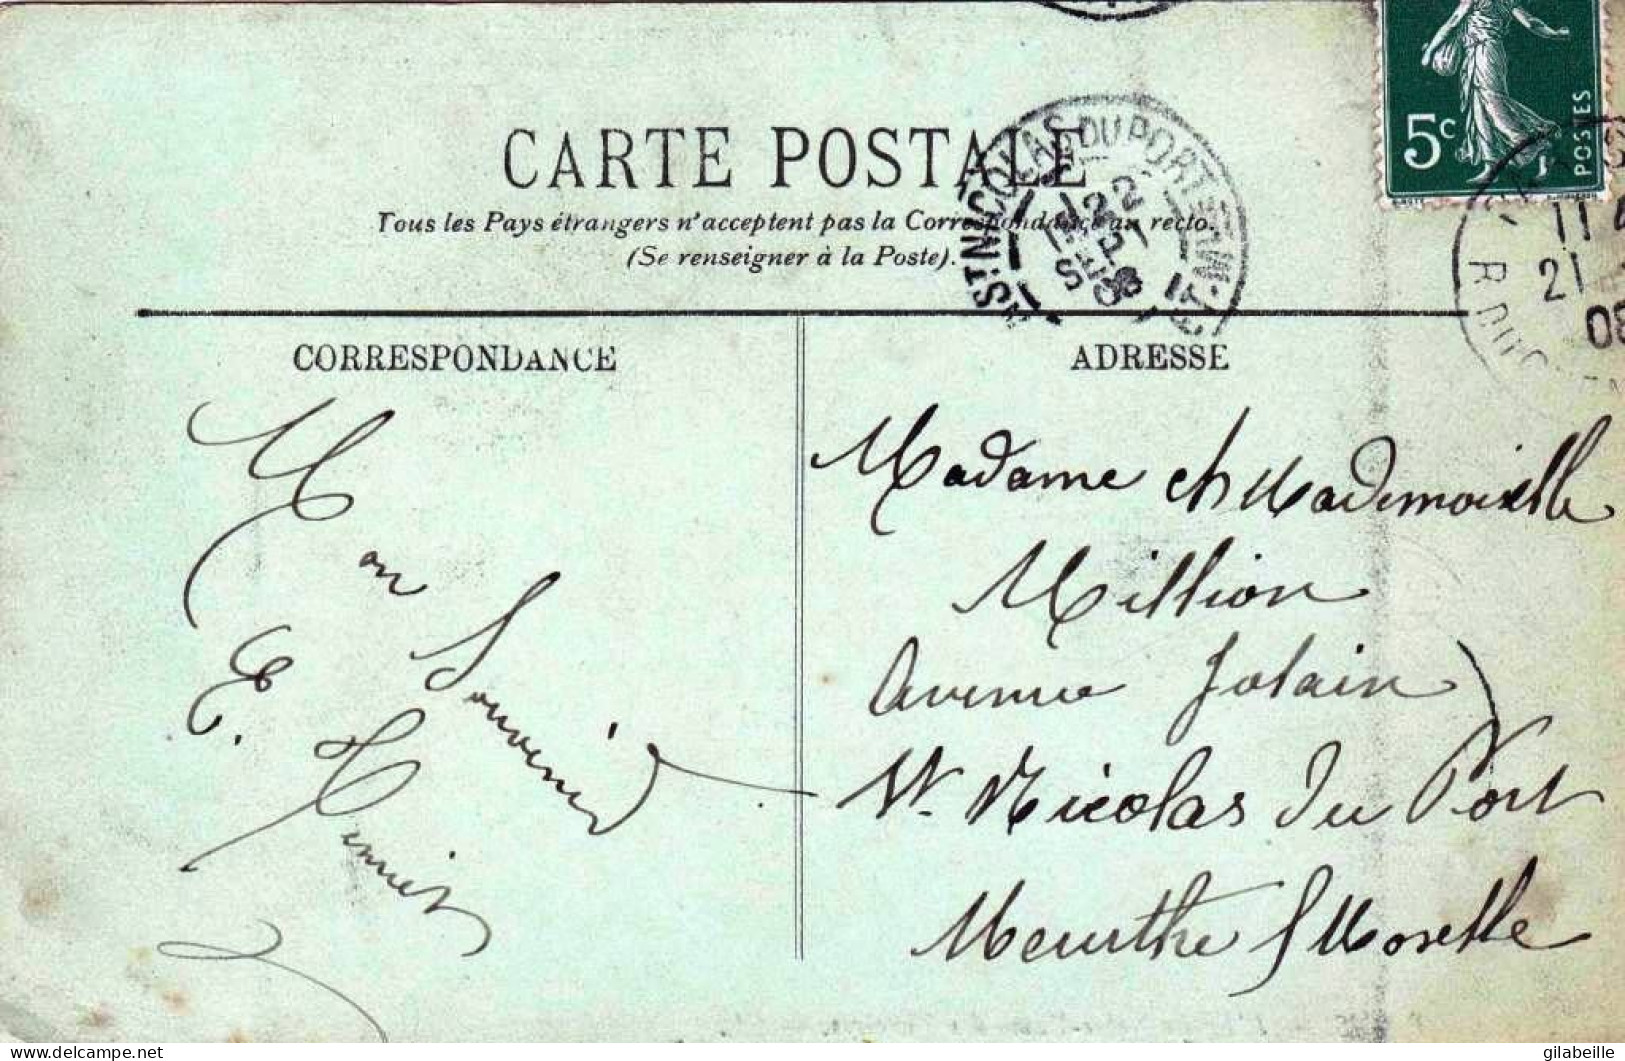 CARTE POSTALE
Tous les Pays étrangers n'acceptent pas la Correspondance au recto.
(Se renseigner à la Poste).
ST NICOLAS-DU-PORT
5c
POSTES
11 4
21
08
CORRESPONDANCE
Mon
Souvenir
E.
ADRESSE
Madame et Mademoiselle
Million
Avenue Jolain
St. Nicolas du Port
Meurthe & Moselle
gilabeille